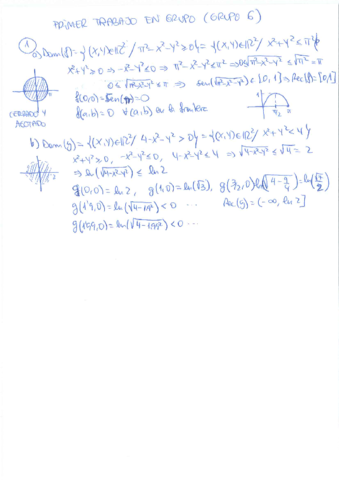 PRIMER TRABAJO EN GRUPO (GRUPO 6)
① a) Dom(f)={(x,y)∈ℝ²/ π²-x²-y²≥0}={(x,y)∈ℝ²/ x²+y²≤π²}
x²+y²≥0 ⇒ -x²-y²≤0 ⇒ π²-x²-y²≤π² ⇒ 0≤√(π²-x²-y²) ≤√π²=π
0≤√(π²-x²-y²)≤π ⇒ sen(√(π²-x²-y²))∈[0,1] ⇒ Rec(f)=[0,1]
f(0,0)=sen(π)=0
CERRADO Y ACOTADO
f(a,b)=0 ∀(a,b) en la frontera
b) Dom(g)={(x,y)∈ℝ²/ 4-x²-y²>0}={(x,y)∈ℝ²/ x²+y²<4}
x²+y²≥0, -x²-y²≤0, 4-x²-y²≤4 ⇒ √(4-x²-y²)≤√4=2
⇒ ln(√(4-x²-y²)) ≤ ln2
g(0,0)=ln2, g(1,0)=ln(√3),
g(1'9,0)=ln(√(4-1'9²))<0 ... Rec(g)=(-∞, ln2]
g(1'99,0)=ln(√(4-1'99²))<0 ...